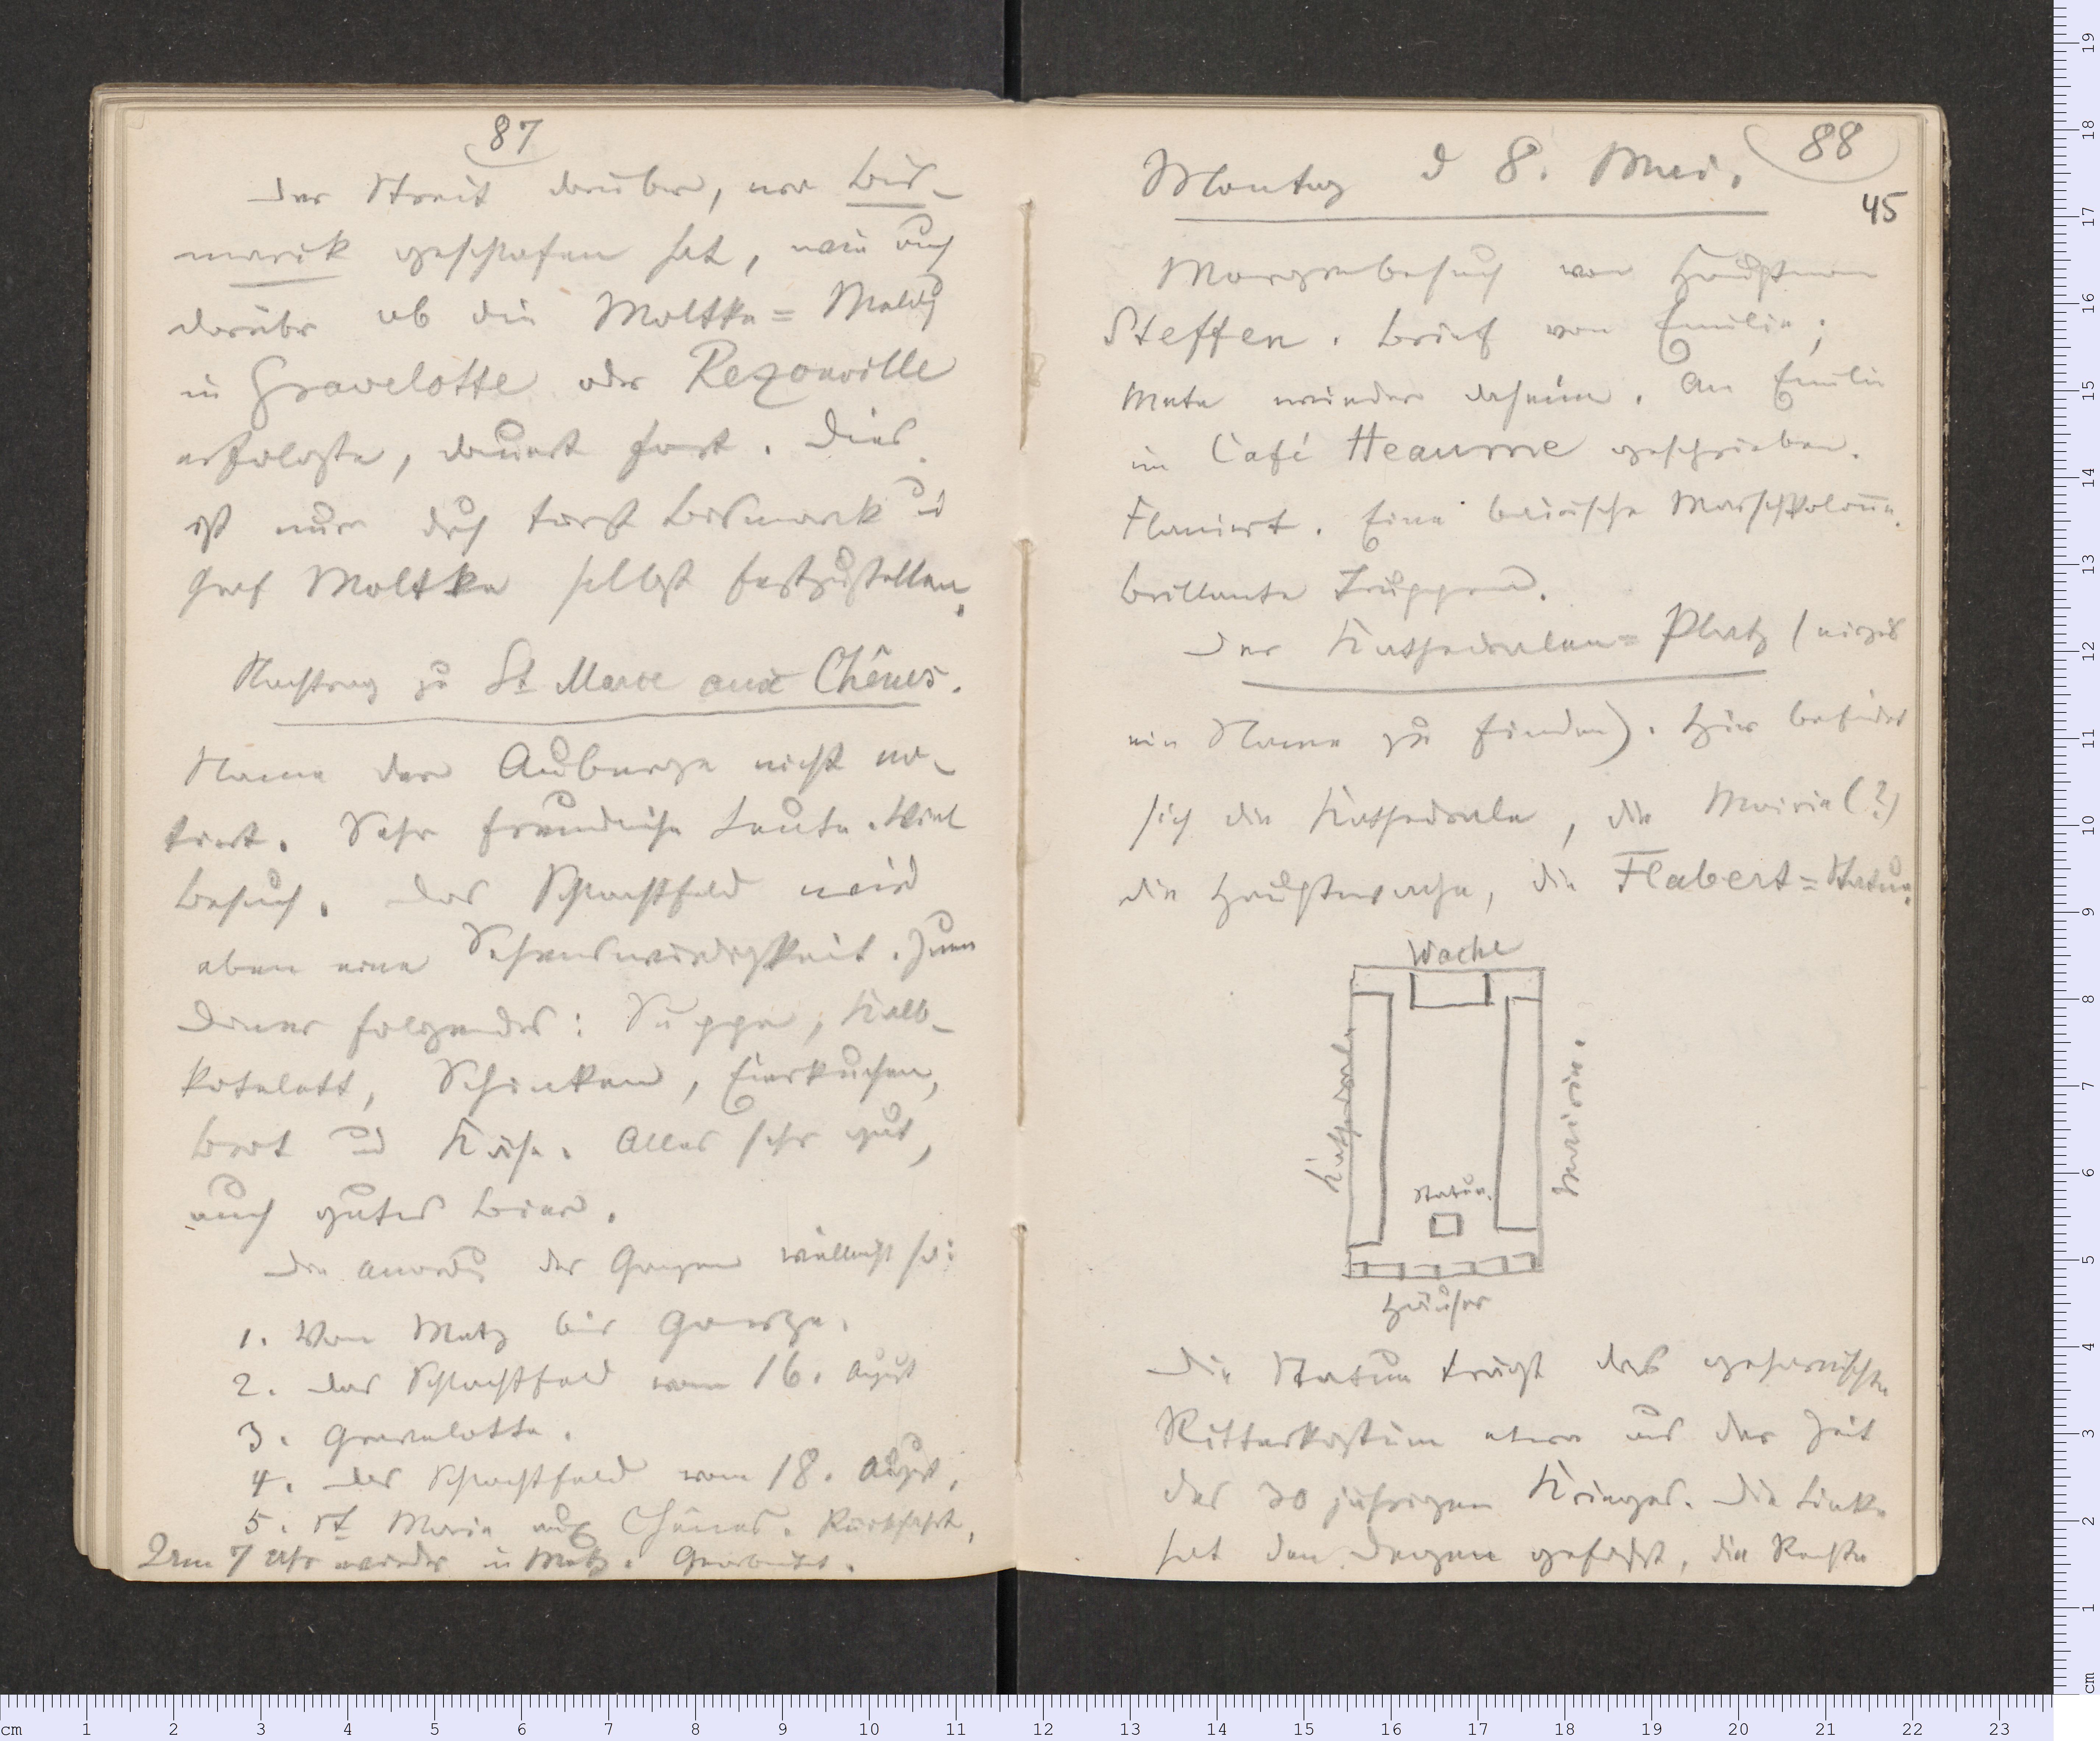 87
Der Streit darüber, wo Bis-
marck geschlafen hat, wie auch
darüber ob die Moltke=Meldg
in Gravelotte oder Rezonville
erfolgte, dauert fort. Dies
ist nur durch Fürst Bismarck u
Graf Moltke selbst festzustellen.
Nachtrag zu St Marie aux Chênes.
Name der Auberge nicht no-
tirt. Sehr freundliche Leute. Viel
Besuch. Das Schlachtfeld wird
eben eine Sehenswürdigkeit. Zum
Diner folgendes: Suppe, Kalb-
kotelett, Schinken, Eierkuchen,
Brot und Käse. Alles sehr gut,
auch gutes Bier.
Die Anordg der Ganzen vielleicht so:
1. Von Metz bis Gorze.
2. Das Schlachtfeld vom 16. August
3. Gravelotte.
4. Das Schlachtfeld vom 18. August.
5. St Marie aux Chênes. Rückfahrt.
Um 7 Uhr wieder in Metz. Gearbeitet.
88
45
Montag d 8. Mai.
Morgenbesuch von Hauptman
Steffen. Brief von Emilie;
Mete wieder daheim. An Emilie
im Café Heaume geschrieben.
Flanirt. Eine bairische Marschkolonne.
brillante Truppen.
Der Kathedralen=Platz (nirgends
ein Name zu finden). Hier befindet
sich die Kathedrale, die Mairie(?)
die Hauptwache, die Flabert=Statue.
Wache
Kathedrale
Mairie.
Statue.
Häuser
Die Statue trägt das geharnischte
Ritterkostüm etwa aus der Zeit
des 30 jährigen Krieges. Die Linke
hat den Degen gefaßt, die Rechte